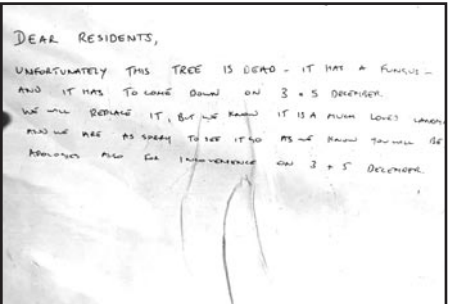 DEAR RESIDENTS,
UNFORTUNATELY THIS TREE IS DEAD - IT HAS A FUNGUS -
AND IT HAS TO COME DOWN ON 3 + 5 DECEMBER.
WE WILL REPLACE IT, BUT WE KNOW IT IS A MUCH LOVED
AND WE ARE AS SORRY TO SEE IT GO AS WE KNOW YOU WILL BE
APOLOGIES ALSO FOR INCONVENIENCE ON 3 + 5 DECEMBER.